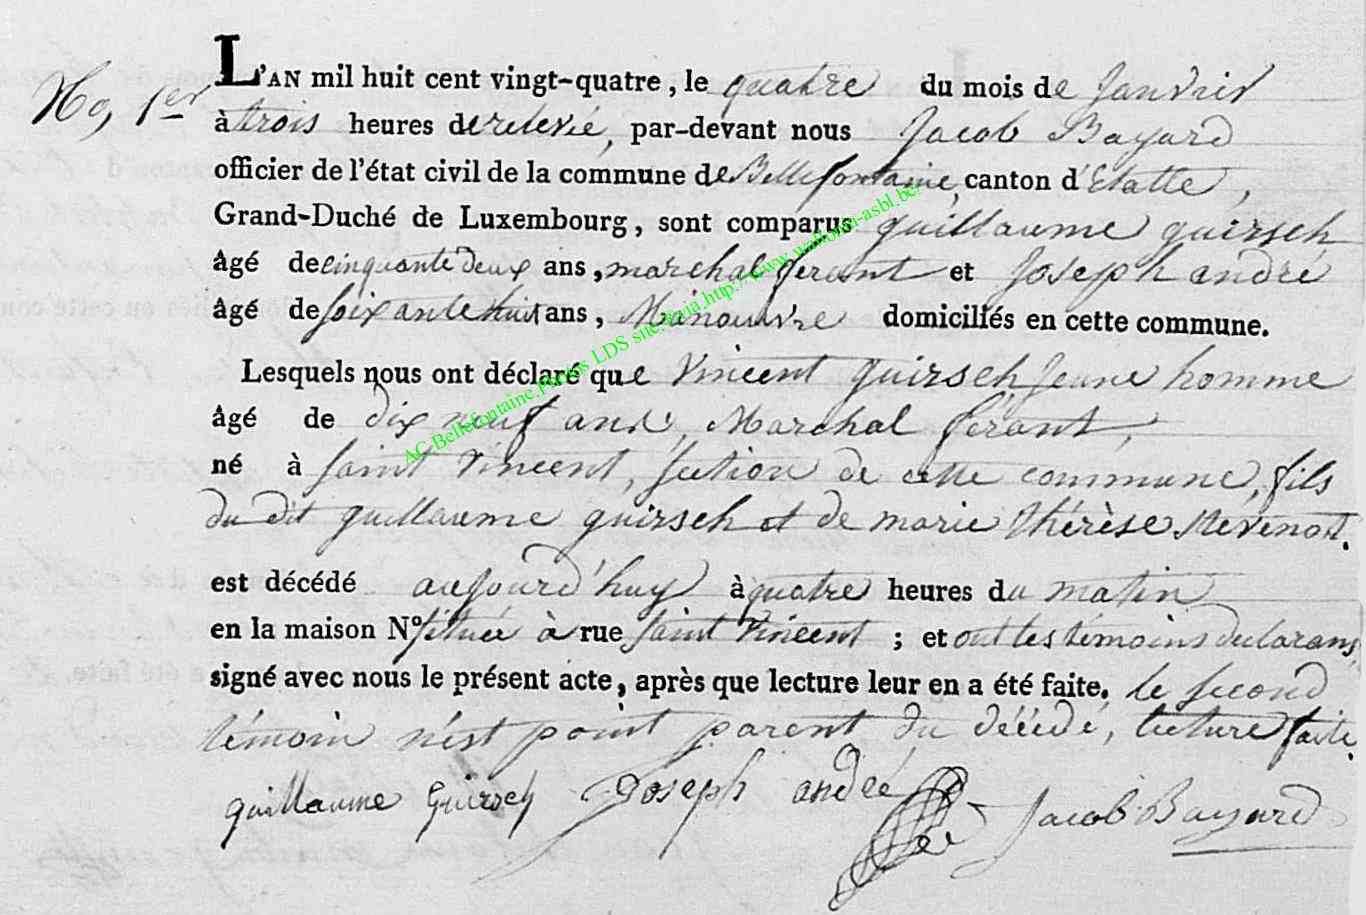 No, 1er L'AN mil huit cent vingt-quatre, le quatre du mois de Janvier
à trois heures de relevée, par-devant nous Jacob Bayard
officier de l'état civil de la commune de Bellefontaine, canton d'Etalle,
Grand-Duché de Luxembourg, sont comparus guillaume guirsch
âgé de cinquante deux ans, marchal ferant et Joseph andré
âgé de soixante huit ans, Manouvre domiciliés en cette commune.
Lesquels nous ont déclaré que Vincent guirsch Jeune homme
âgé de dix neuf ans, Marchal férant,
né à saint Vincent, section de cette commune, fils
du dit guillaume guirsch et de marie thérèse Stévenot.
est décédé aujourd'huy à quatre heures du matin
en la maison N° située à rue saint Vincent ; et ont les témoins declarans
signé avec nous le présent acte, après que lecture leur en a été faite. le second
témoin n'est point parent du décédé, lecture faite.
guillaume Guirsch Joseph andré Jacob Bayard
AC Bellefontaine, Photos LDS site http://www.